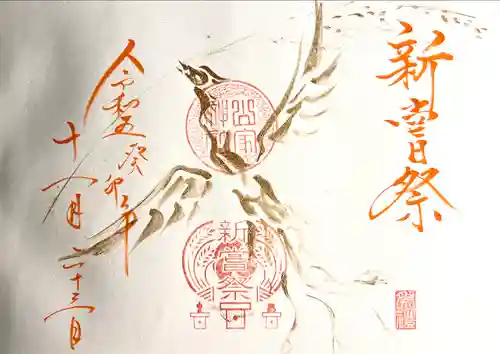 新嘗祭
令和五癸卯年
十一月二十三日
新嘗祭